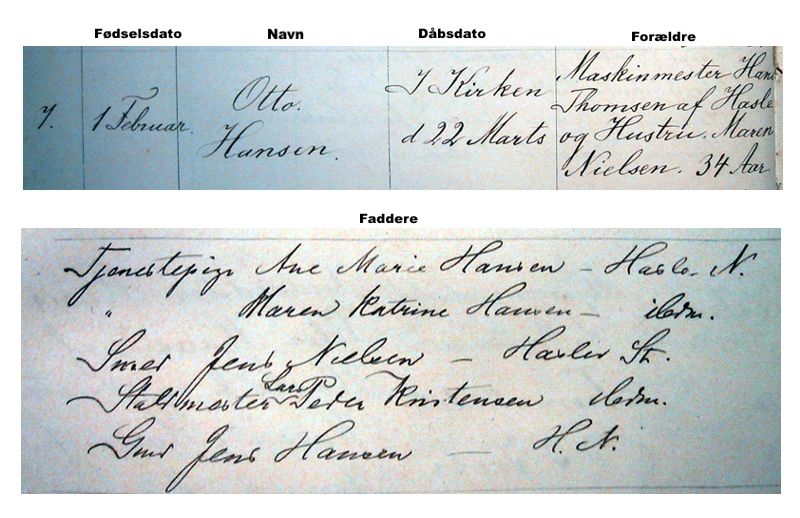 Fødselsdato Navn Dåbsdato Forældre
7. 1 Februar. Otto. Hansen. I Kirken d 22 Marts Maskinmester Hans
Thomsen af Hasle
og Hustru. Maren
Nielsen. 34 Aar
Faddere
Tjenestepige Ane Marie Hansen – Hasle. N.
" Maren Katrine Hansen – ibdm.
Smed Jens Nielsen – Haslev St.
Staldmester Lars Peder Kristensen ibdm.
Gmd Jens Hansen — H. N.